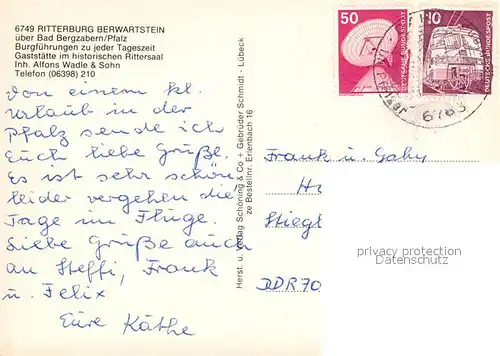 6749 RITTERBURG BERWARTSTEIN
über Bad Bergzabern/Pfalz
Burgführungen zu jeder Tageszeit
Gaststätte im historischen Rittersaal
Inh. Alfons Wadle & Sohn
Telefon (06398) 210
Von einem kl.
Urlaub in der
Pfalz sende ich
Euch liebe Grüße.
Es ist sehr schön
leider vergehen die
Tage im Fluge.
Liebe Grüße auch
an Steffi, Frank
u. Felix
Eure Käthe
Herst. u. Verlag Schöning & Co + Gebrüder Schmidt - Lübeck
ze Bestellnr. Erlenbach 16
50
DEUTSCHE BUNDESPOST
10
DEUTSCHE BUNDESPOST
6763
Frank u. Gaby
Stiegl
DDR 70
privacy protection
Datenschutz